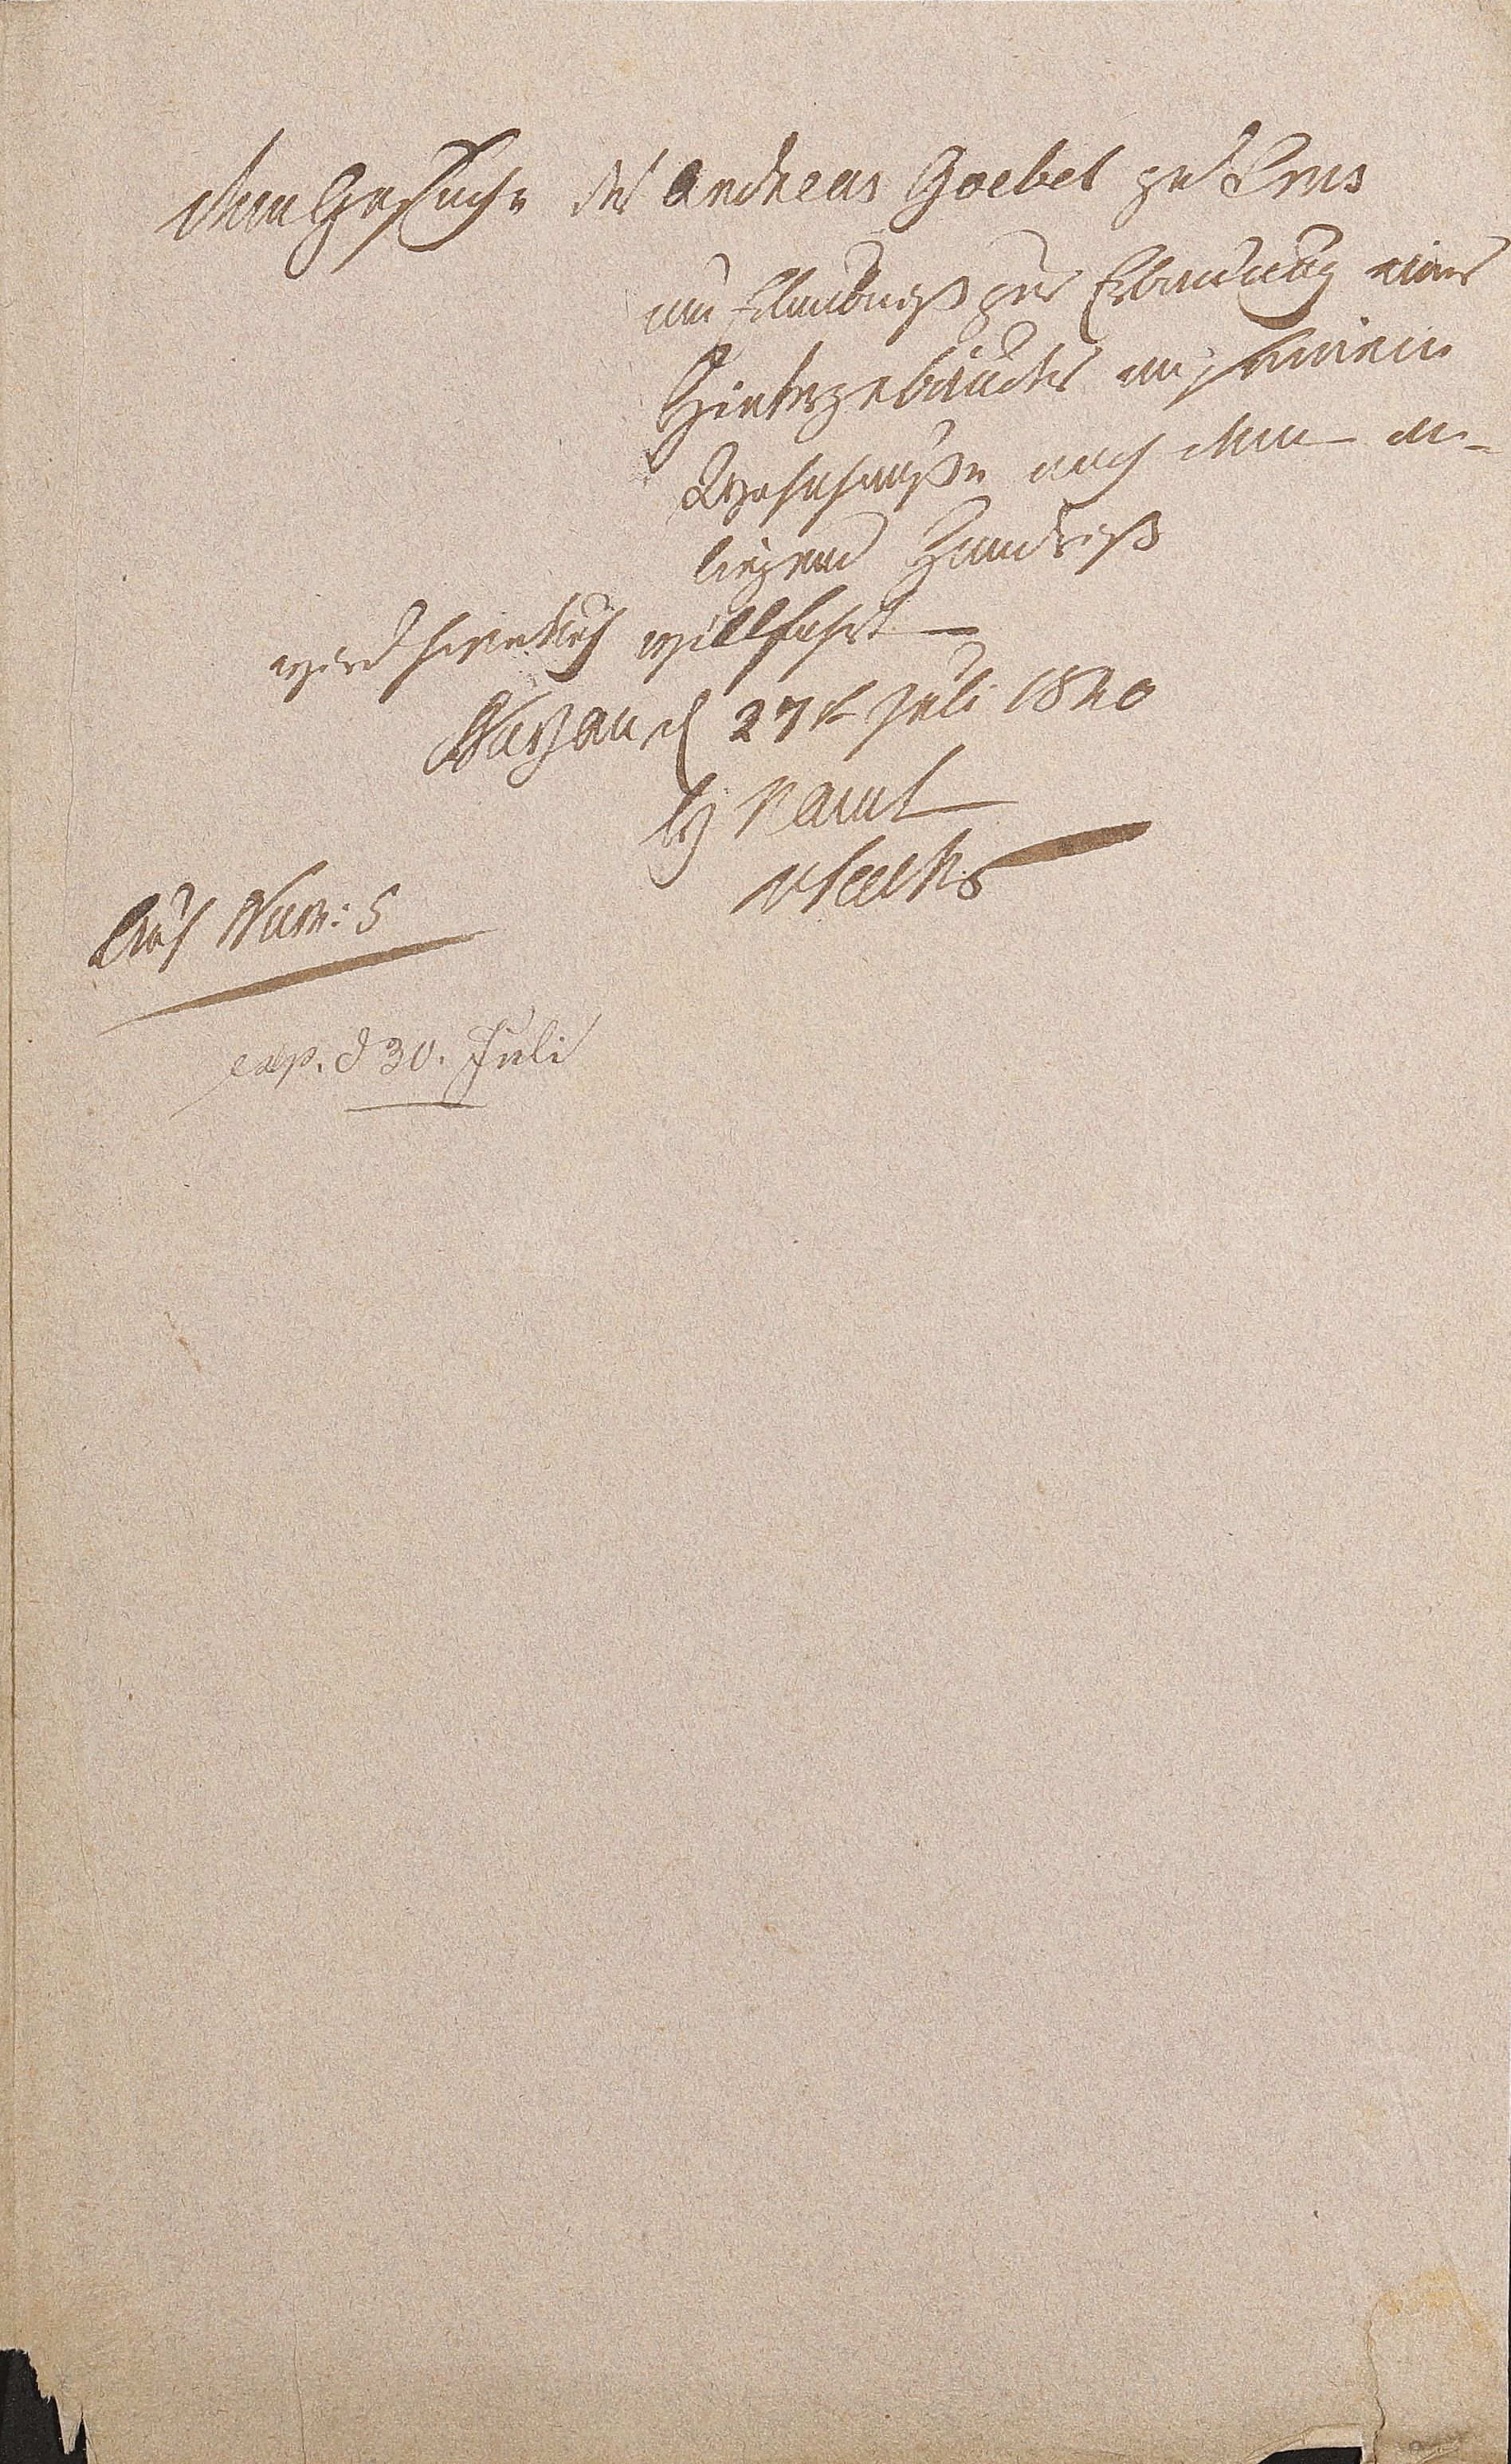 Dem Gesuche des Andreas Goebel zu Ems
um Erlaubniß zur Erbauung eines
Hintergebäudes an seinem
Wohnhauße nach dem an-
liegend Handriß
wird hierdurch willfahrt
Nassau d 27t Juli 1820
Hz N Amt
Ad Num: 5
exp. d 30. Juli